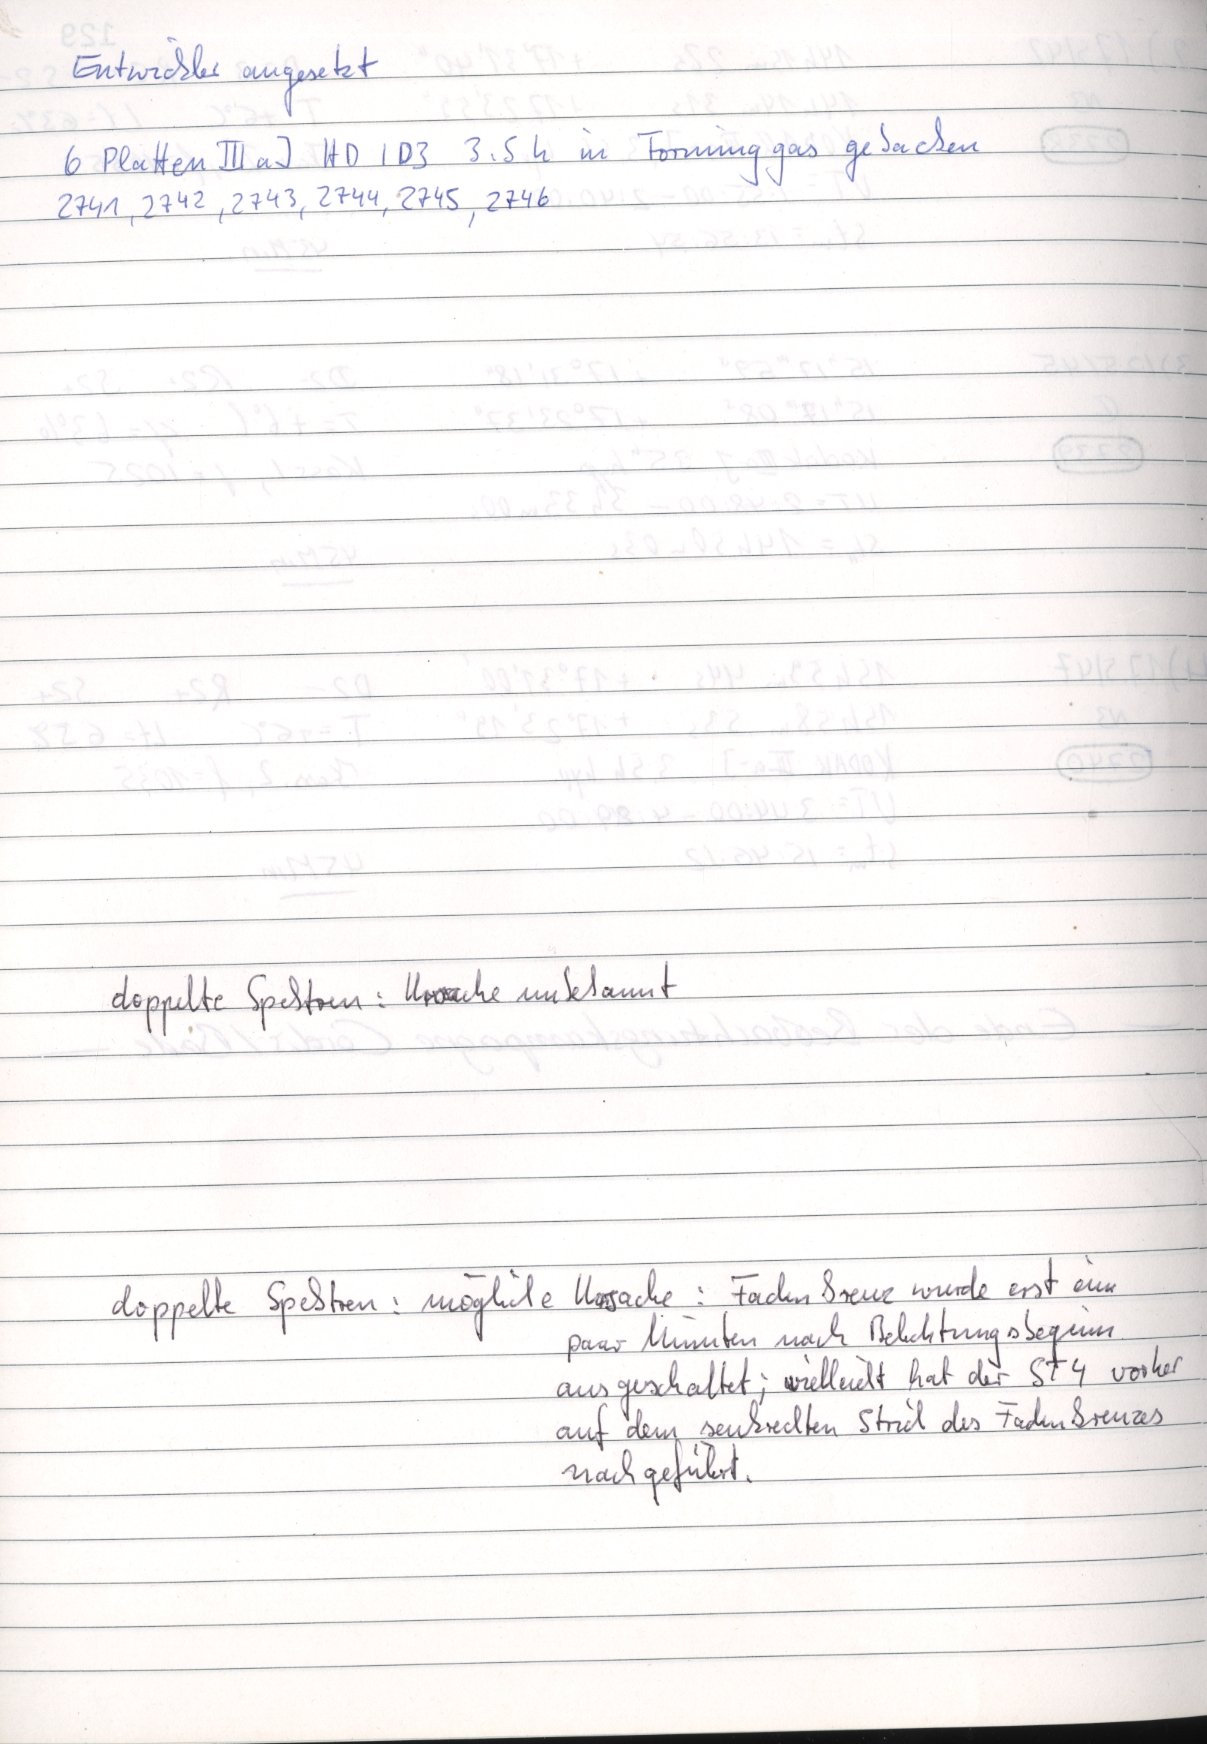 Entwickler angesetzt
6 Platten III a J HD 1D3 3.5 h in Forminggas gebacken
2741, 2742, 2743, 2744, 2745, 2746
doppelte Spektren: Ursache unbekannt
doppelte Spektren: mögliche Ursache: Fadenkreuz wurde erst ein
paar Minuten nach Belichtungsbeginn
ausgeschaltet; vielleicht hat der ST4 vorher
auf dem senkrechten Strich des Fadenkreuzes
nachgeführt.